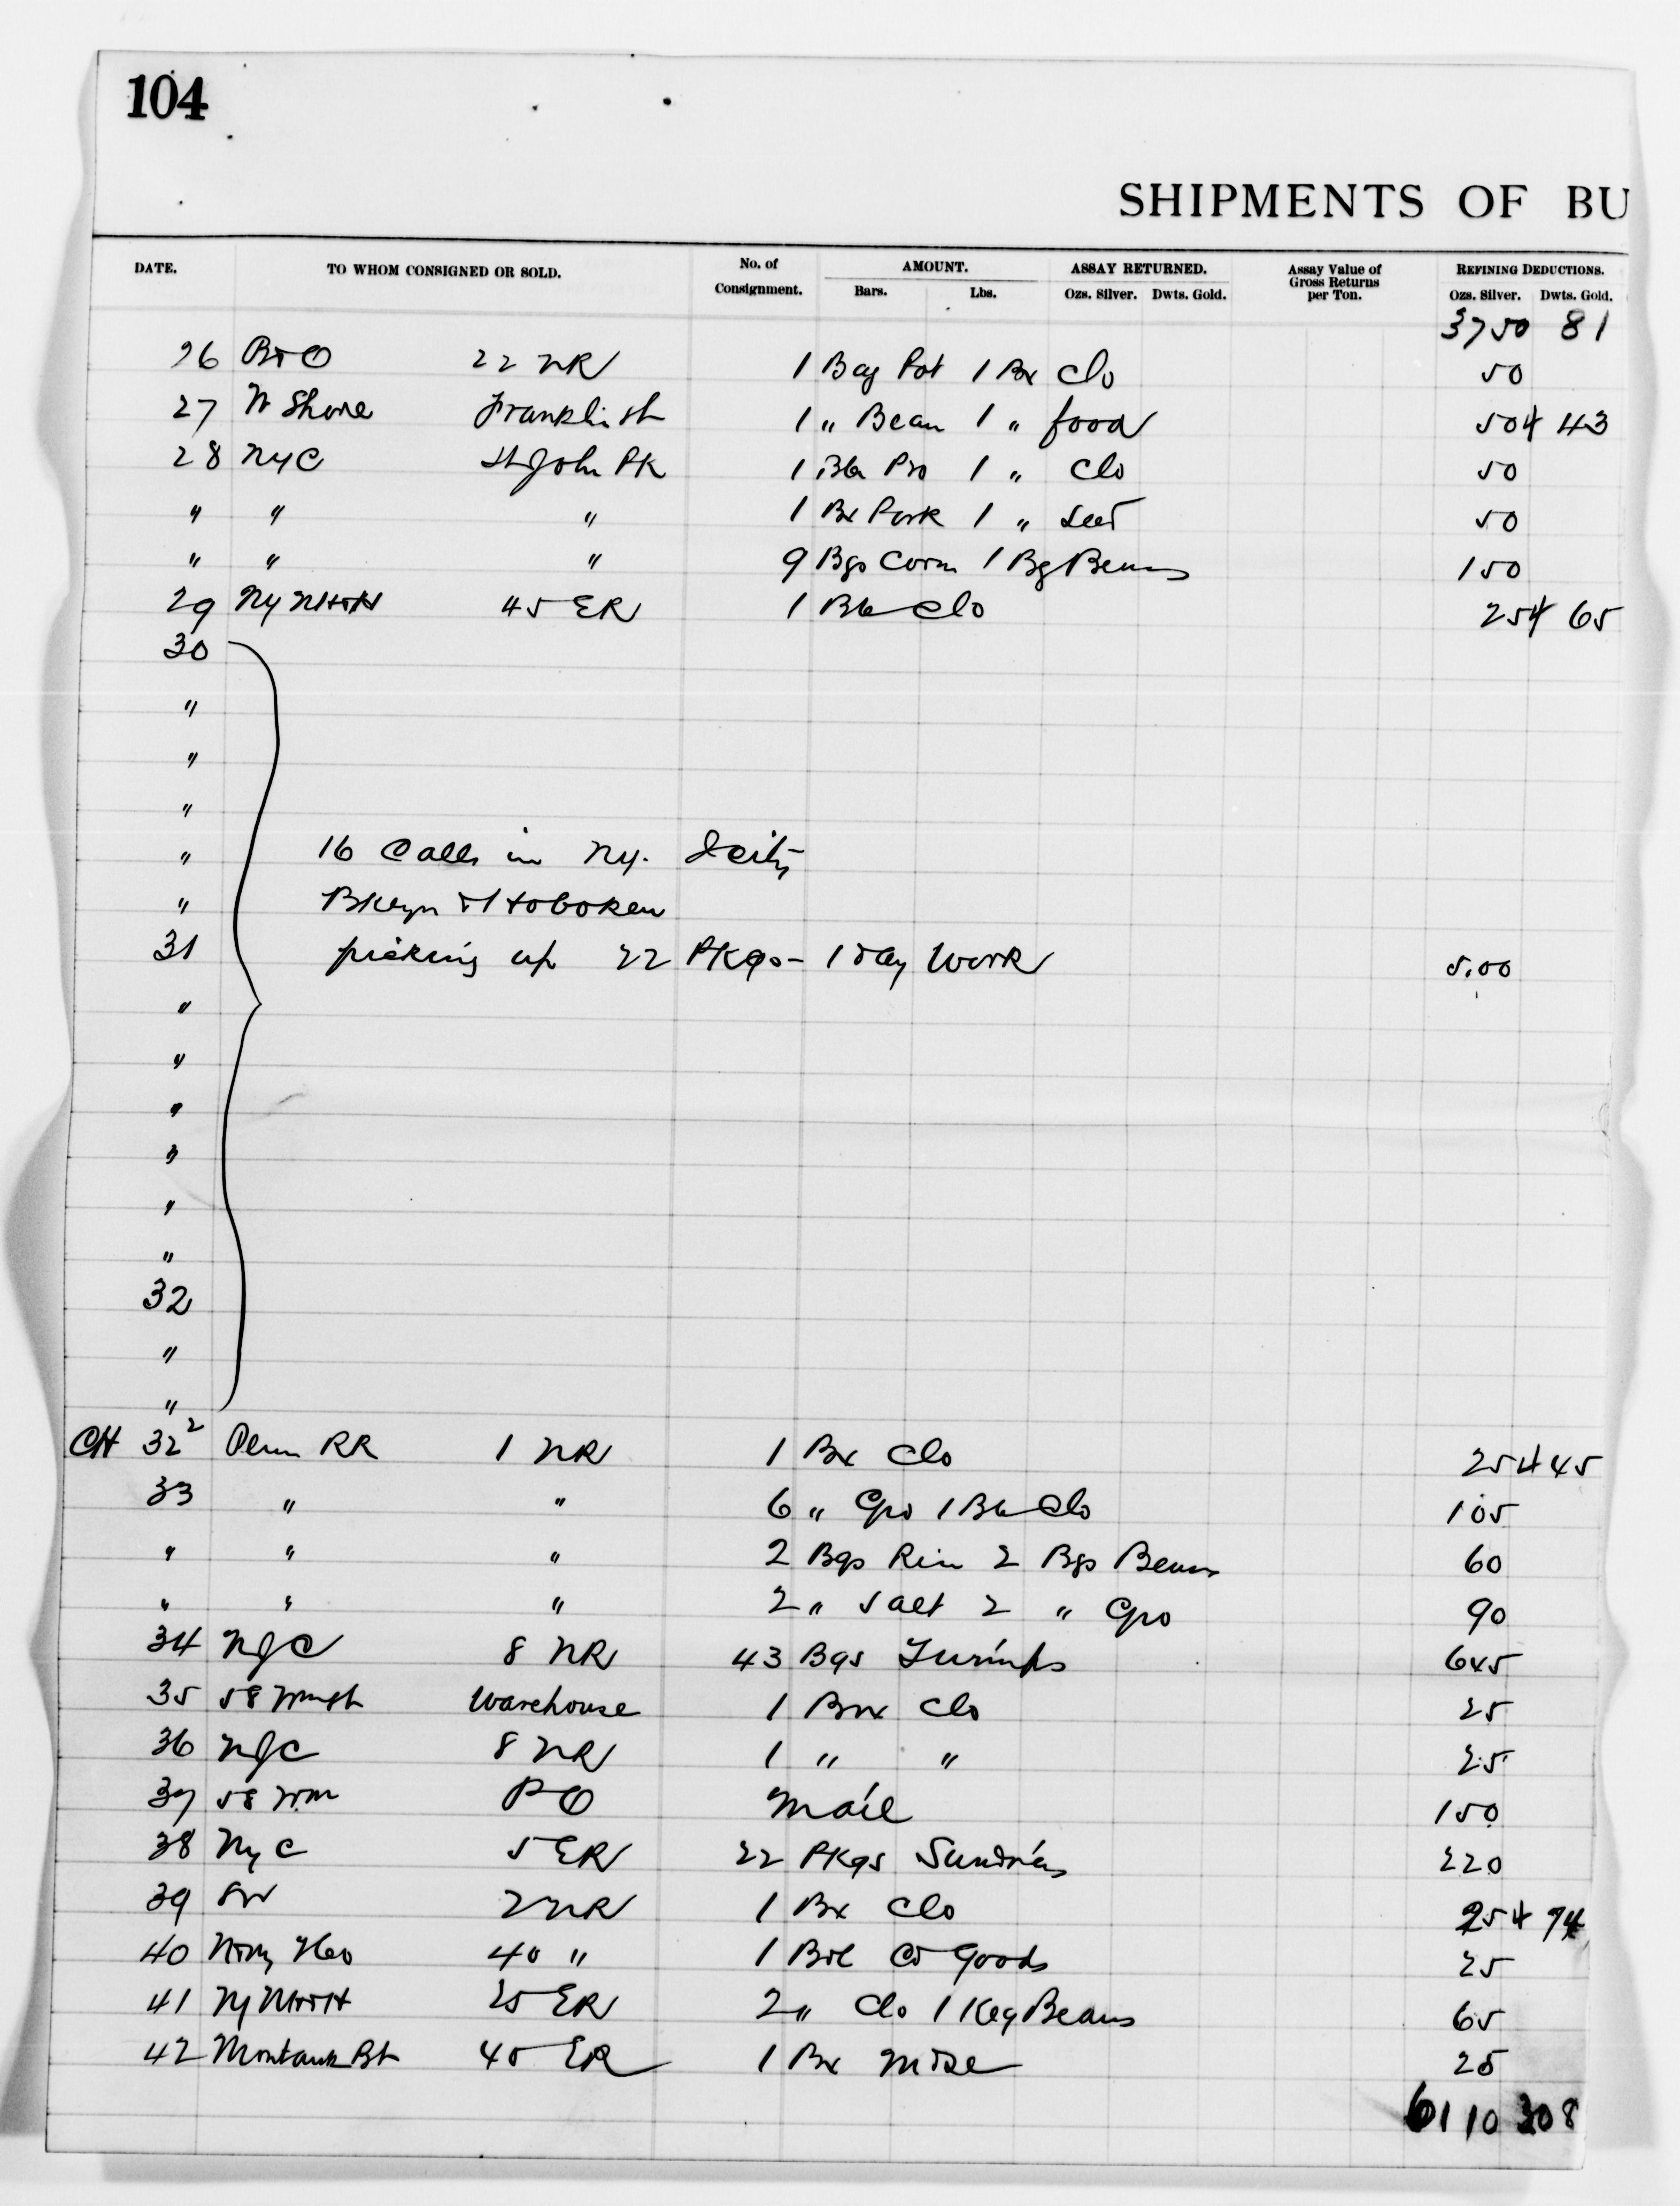 104
SHIPMENTS OF BU
DATE. TO WHOM CONSIGNED OR SOLD. No. of Consignment. AMOUNT. Bars. Lbs. ASSAY RETURNED. Ozs. Silver. Dwts. Gold. Assay Value of Gross Returns per Ton. REFINING DEDUCTIONS. Ozs. Silver. Dwts. Gold.
3750 81
26 B+O 22 NR 1 Bag Pot 1 Bx Clo 50
27 W Shore Franklin st 1 " Bean 1 " food 50 + 43
28 NYC St John Pk 1 Bbl Pro 1 " Clo 50
" " " 1 Bx Pork 1 " 50
" " " 9 Bgs Corn 1 Bg Beans 150
29 NY NH+H 45 ER 1 Bbl Clo 25 + 65
30
"
"
"
" 16 Calls in NY. J City
" Bklyn + Hoboken
31 picking up 22 Pkgs - 1 day Work 5.00
"
"
"
"
"
"
32
"
"
CH 32² Penn RR 1 NR 1 Bx Clo 25 + 45
33 " " 6 " Gro 1 Bbl Clo 105
" " " 2 Bgs Rice 2 Bgs Beans 60
" " " 2 " Salt 2 " Gro 90
34 NJC 8 NR 43 Bgs Turnips 645
35 58 Wm st Warehouse 1 Box Clo 25
36 NJC 8 NR 1 " " 25
37 58 Wm PO Mail 150
38 NYC 5 ER 22 Pkgs Sundries 220
39 2 NR 1 Bx Clo 25 + 74
40 40 " 1 Bbl Goods 25
41 NY NH+H 25 ER 2 " Clo 1 Keg Beans 65
42 Montauk St 40 ER 1 Bx Mdse 25
6110 308